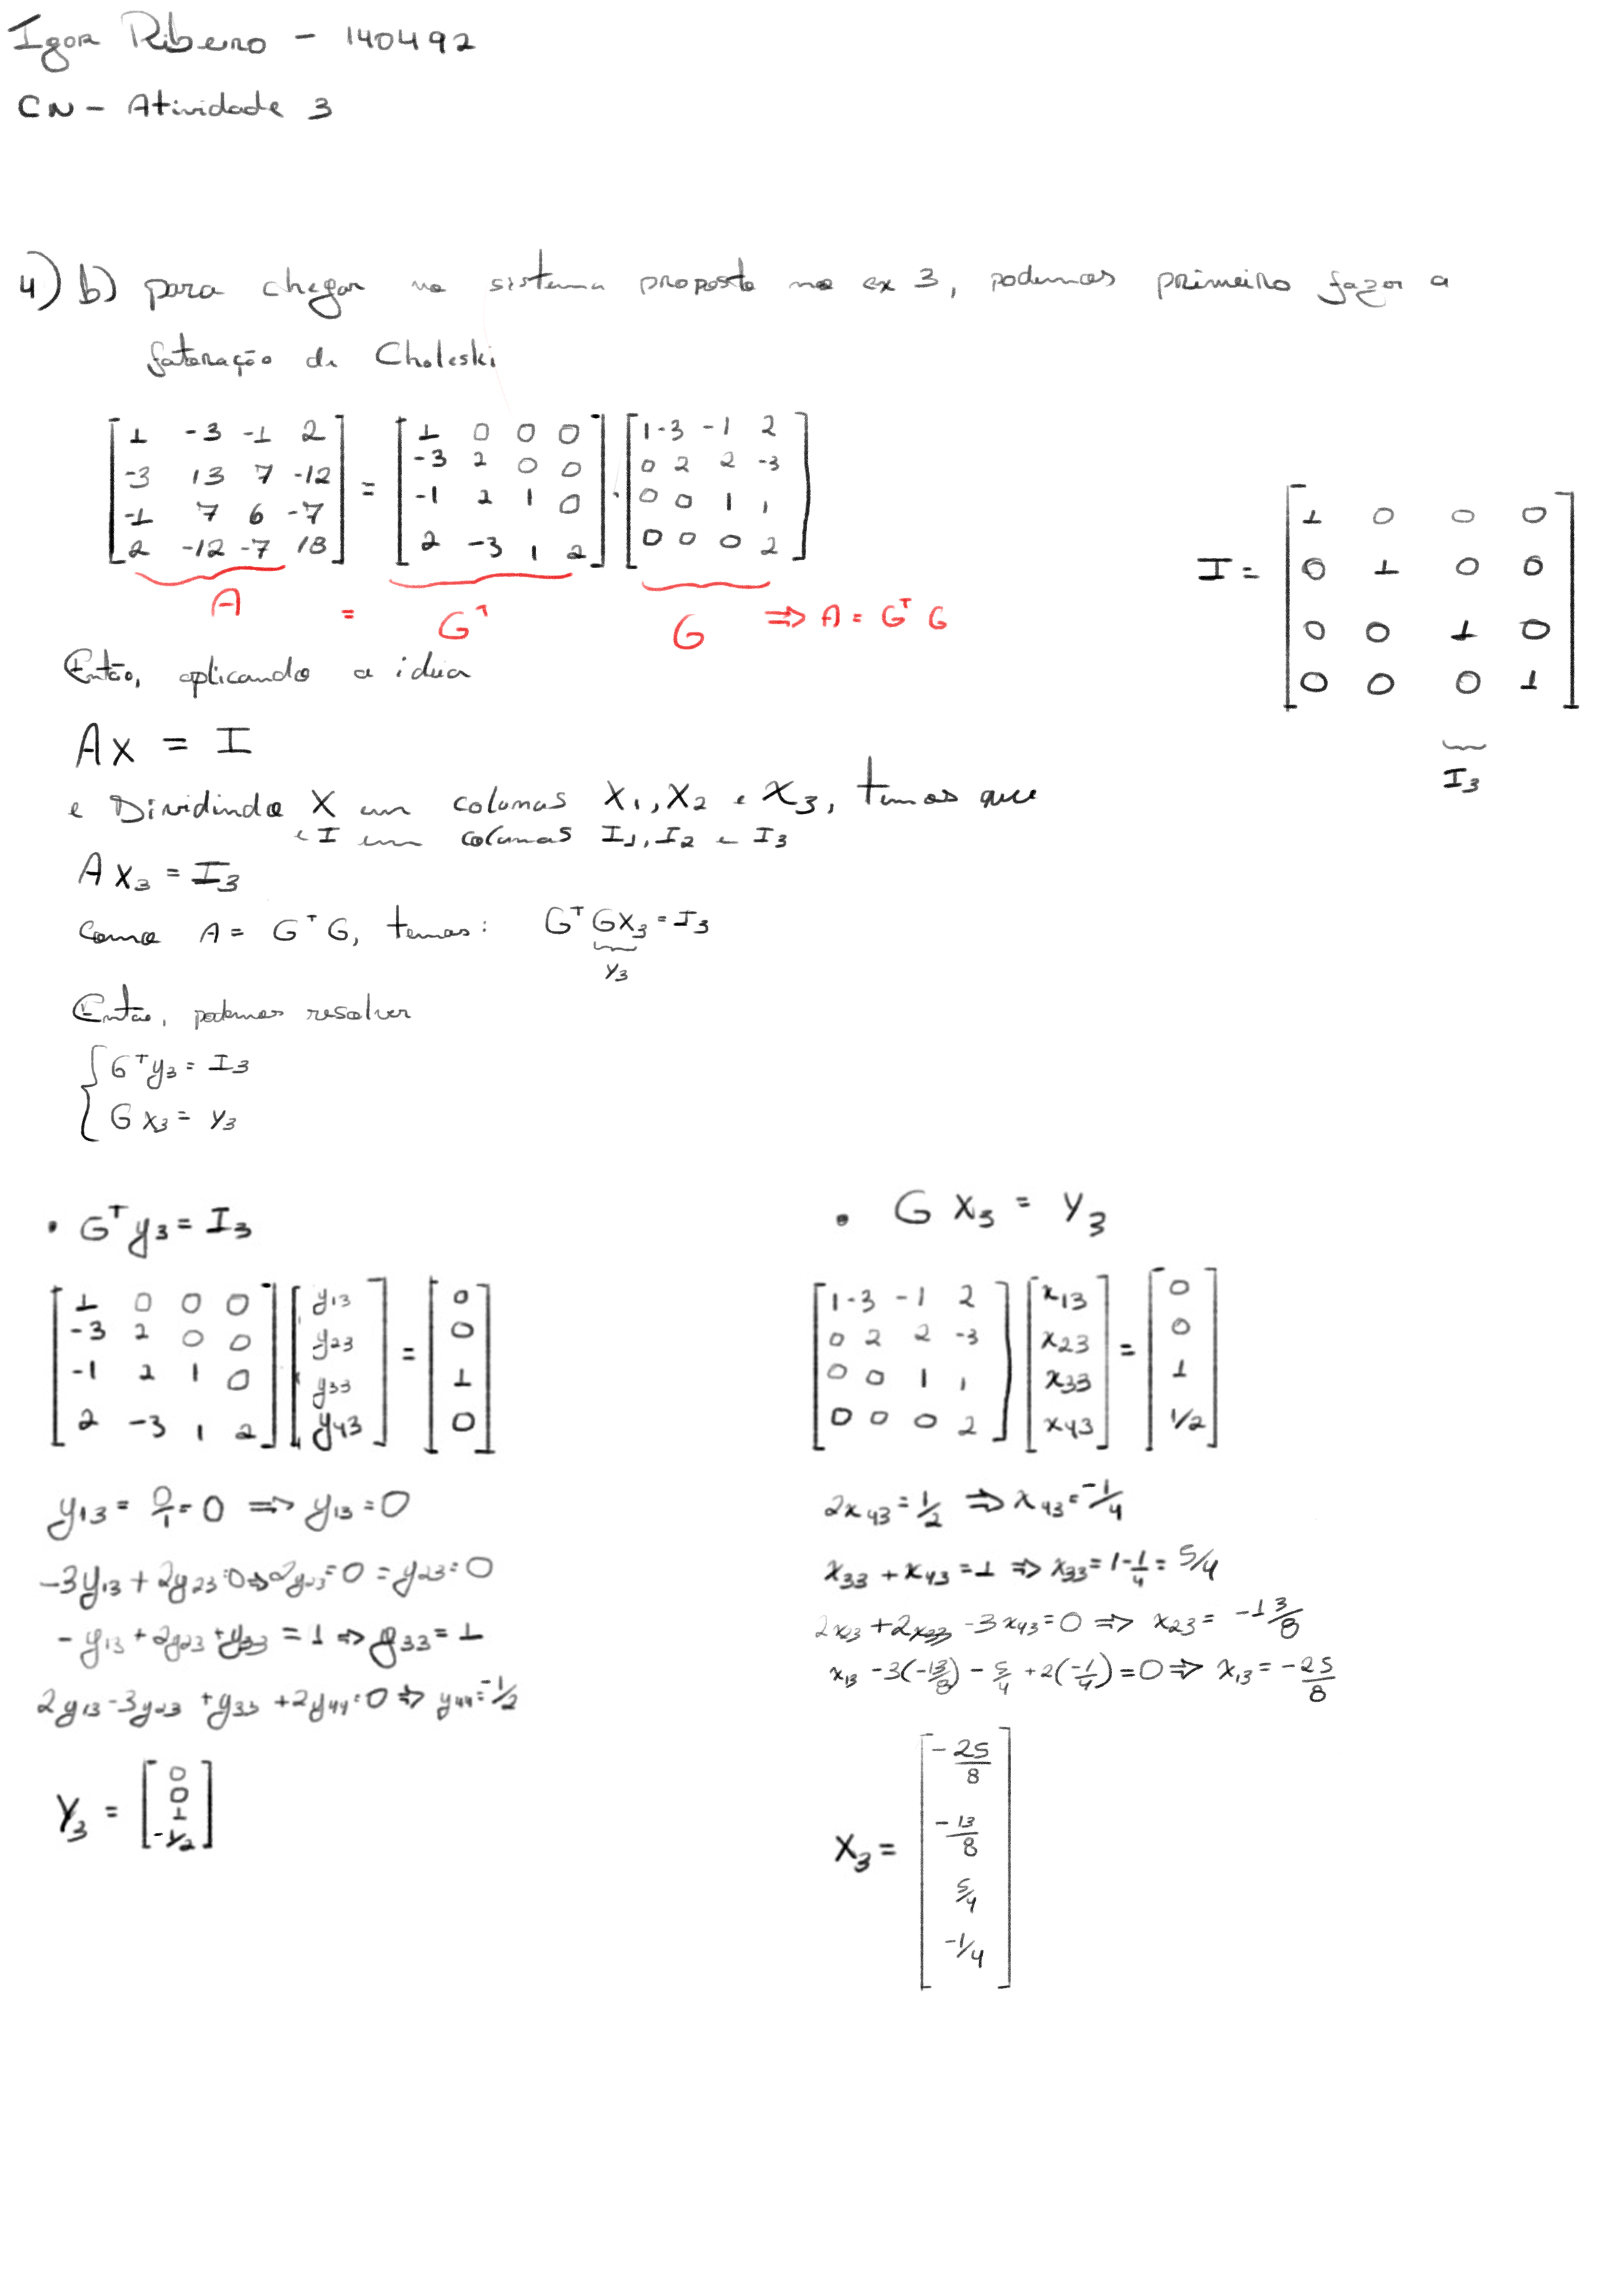 Igor Ribeiro - 140492
CN - Atividade 3
4) b) para chegar no sistema proposto no ex 3, podemos primeiro fazer a
fatoração de Choleski
[1 -3 -1 2; -3 13 7 -12; -1 7 6 -7; 2 -12 -7 18] = [1 0 0 0; -3 2 0 0; -1 2 1 0; 2 -3 1 2] . [1 -3 -1 2; 0 2 2 -3; 0 0 1 1; 0 0 0 2]
A = Gᵀ G ⇒ A = Gᵀ G
I = [1 0 0 0; 0 1 0 0; 0 0 1 0; 0 0 0 1]
I₃
Então, aplicando a ideia
AX = I
e Dividindo X em colunas X₁, X₂ e X₃, temos que
e I em colunas I₁, I₂ e I₃
A X₃ = I₃
Como A = Gᵀ G, temos: Gᵀ G X₃ = I₃
y₃
Então, podemos resolver
{ Gᵀy₃ = I₃
G x₃ = y₃
• Gᵀy₃ = I₃
[1 0 0 0; -3 2 0 0; -1 2 1 0; 2 -3 1 2] [y13; y23; y33; y43] = [0; 0; 1; 0]
y13 = 0/1 = 0 ⇒ y13 = 0
-3y13 + 2y23 = 0 ⇒ 2y23 = 0 = y23 = 0
- y13 + 2y23 + y33 = 1 ⇒ y33 = 1
2y13 - 3y23 + y33 + 2y44 = 0 ⇒ y44 = -1/2
Y₃ = [0; 0; 1; -1/2]
• G X₃ = Y₃
[1 -3 -1 2; 0 2 2 -3; 0 0 1 1; 0 0 0 2] [x13; x23; x33; x43] = [0; 0; 1; 1/2]
2x43 = 1/2 ⇒ x43 = -1/4
x33 + x43 = 1 ⇒ x33 = 1 - 1/4 = 5/4
2x23 + 2x33 - 3x43 = 0 ⇒ x23 = -13/8
x13 - 3(-13/8) - 5/4 + 2(-1/4) = 0 ⇒ x13 = -25/8
X₃ = [-25/8; -13/8; 5/4; -1/4]